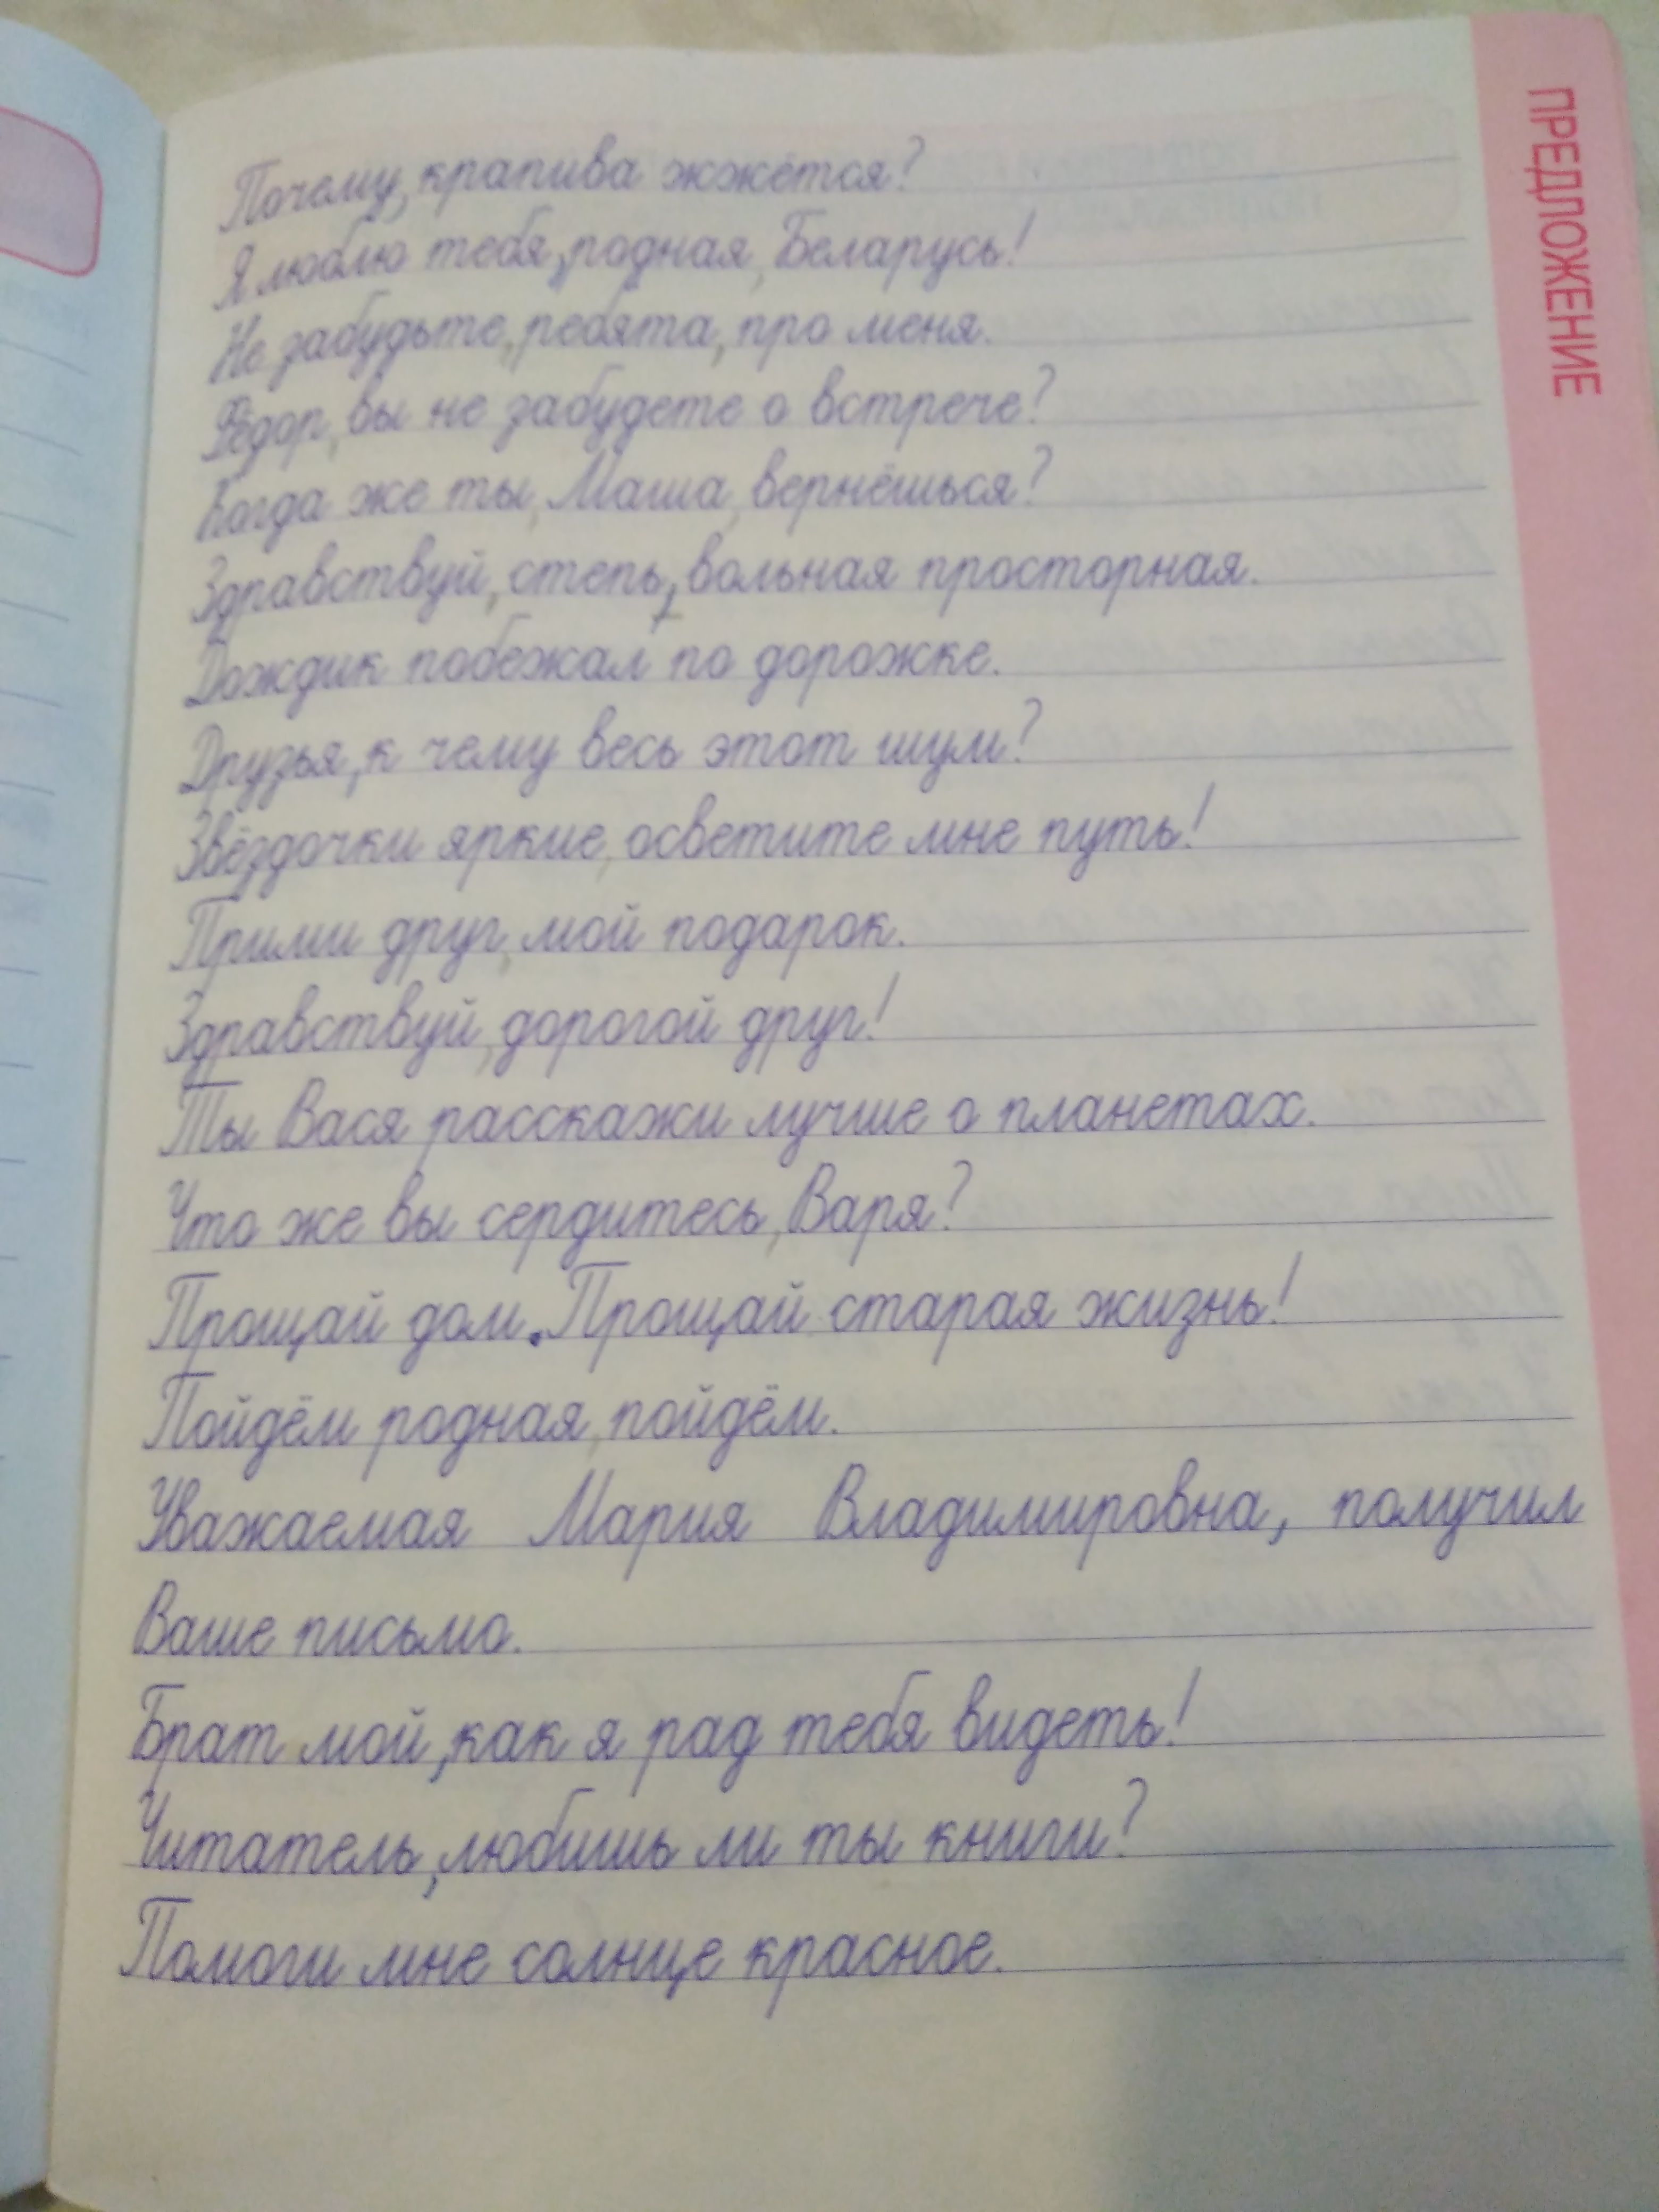 ПРЕДЛОЖЕНИЕ
Почему, крапива жжётся?
Я люблю тебя, родная, Беларусь!
Не забудьте, ребята, про меня.
Фёдор, вы не забудете о встрече?
Когда же ты, Маша, вернёшься?
Здравствуй, степь, вольная просторная.
Дождик побежал по дорожке.
Друзья, к чему весь этот шум?
Звёздочки яркие, осветите мне путь!
Прими друг, мой подарок.
Здравствуй, дорогой друг!
Ты Вася расскажи лучше о планетах.
Что же вы сердитесь, Варя?
Прощай дом. Прощай старая жизнь!
Пойдём родная, пойдём.
Уважаемая Мария Владимировна, получил
Ваше письмо.
Брат мой, как я рад тебя видеть!
Читатель, любишь ли ты книги?
Помоги мне солнце красное.